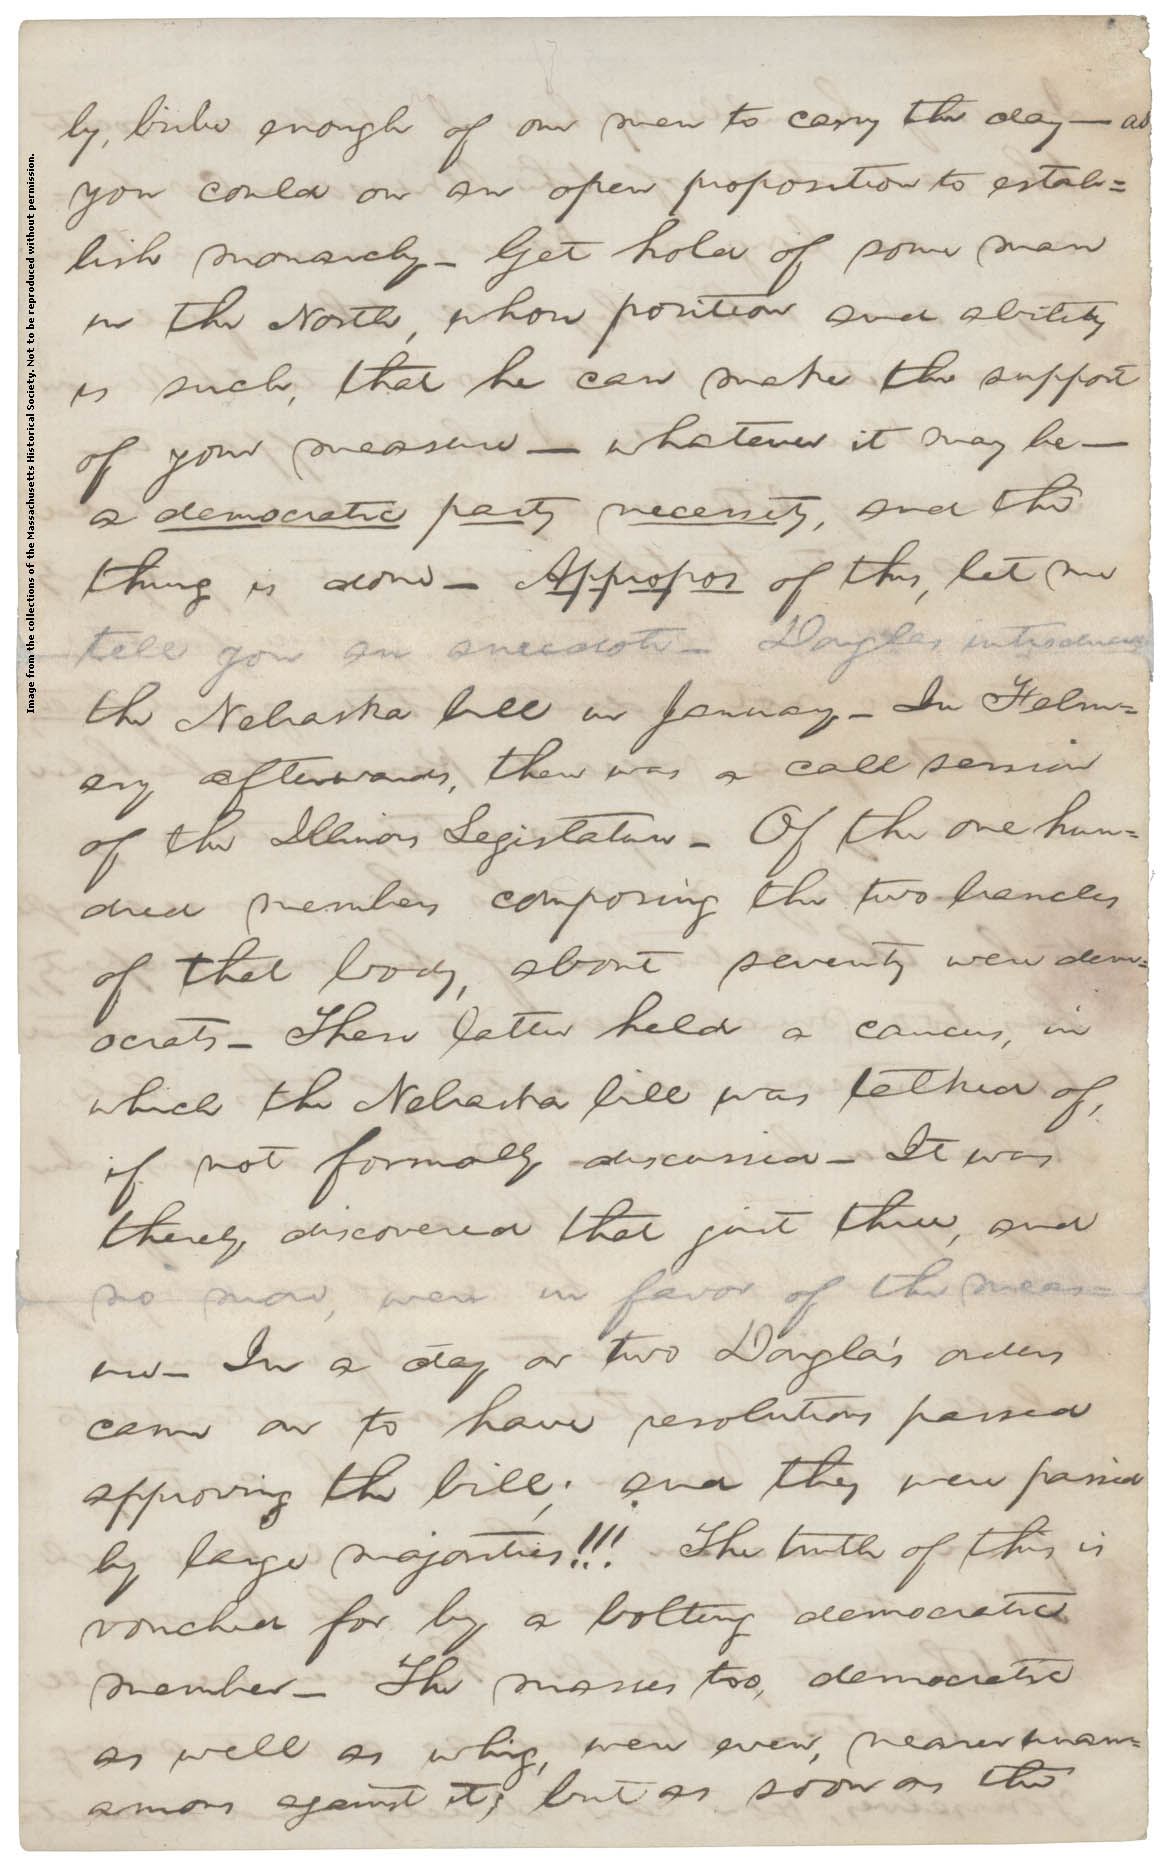 ly, bribe enough of our men to carry the day — as
you could on an open proposition to estab=
lish monarchy — Get hold of some man
in the North, whose position and ability
is such, that he can make the support
of your measure — whatever it may be —
a democratic party necessity, and the
thing is done — Appropos of this, let me
tell you an anecdote — Douglas introduced
the Nebraska bill in January — In Febru=
ary afterwards, there was a call session
of the Illinois Legislature — Of the one hun=
dred members composing the two branches
of that body, about seventy were dem=
ocrats — These latter held a caucus, in
which the Nebraska bill was talked of,
if not formally discussed — It was
thereby discovered that just three, and
no more, were in favor of the meas=
ure — In a day or two Dougla's orders
came on to have resolutions passed
approving the bill; and they were passed
by large majorities!!! The truth of this is
vouched for by a bolting democratic
member — The masses too, democratic
as well as whig, were even, nearer unan=
amous against it; but as soon as the
Image from the collections of the Massachusetts Historical Society. Not to be reproduced without permission.